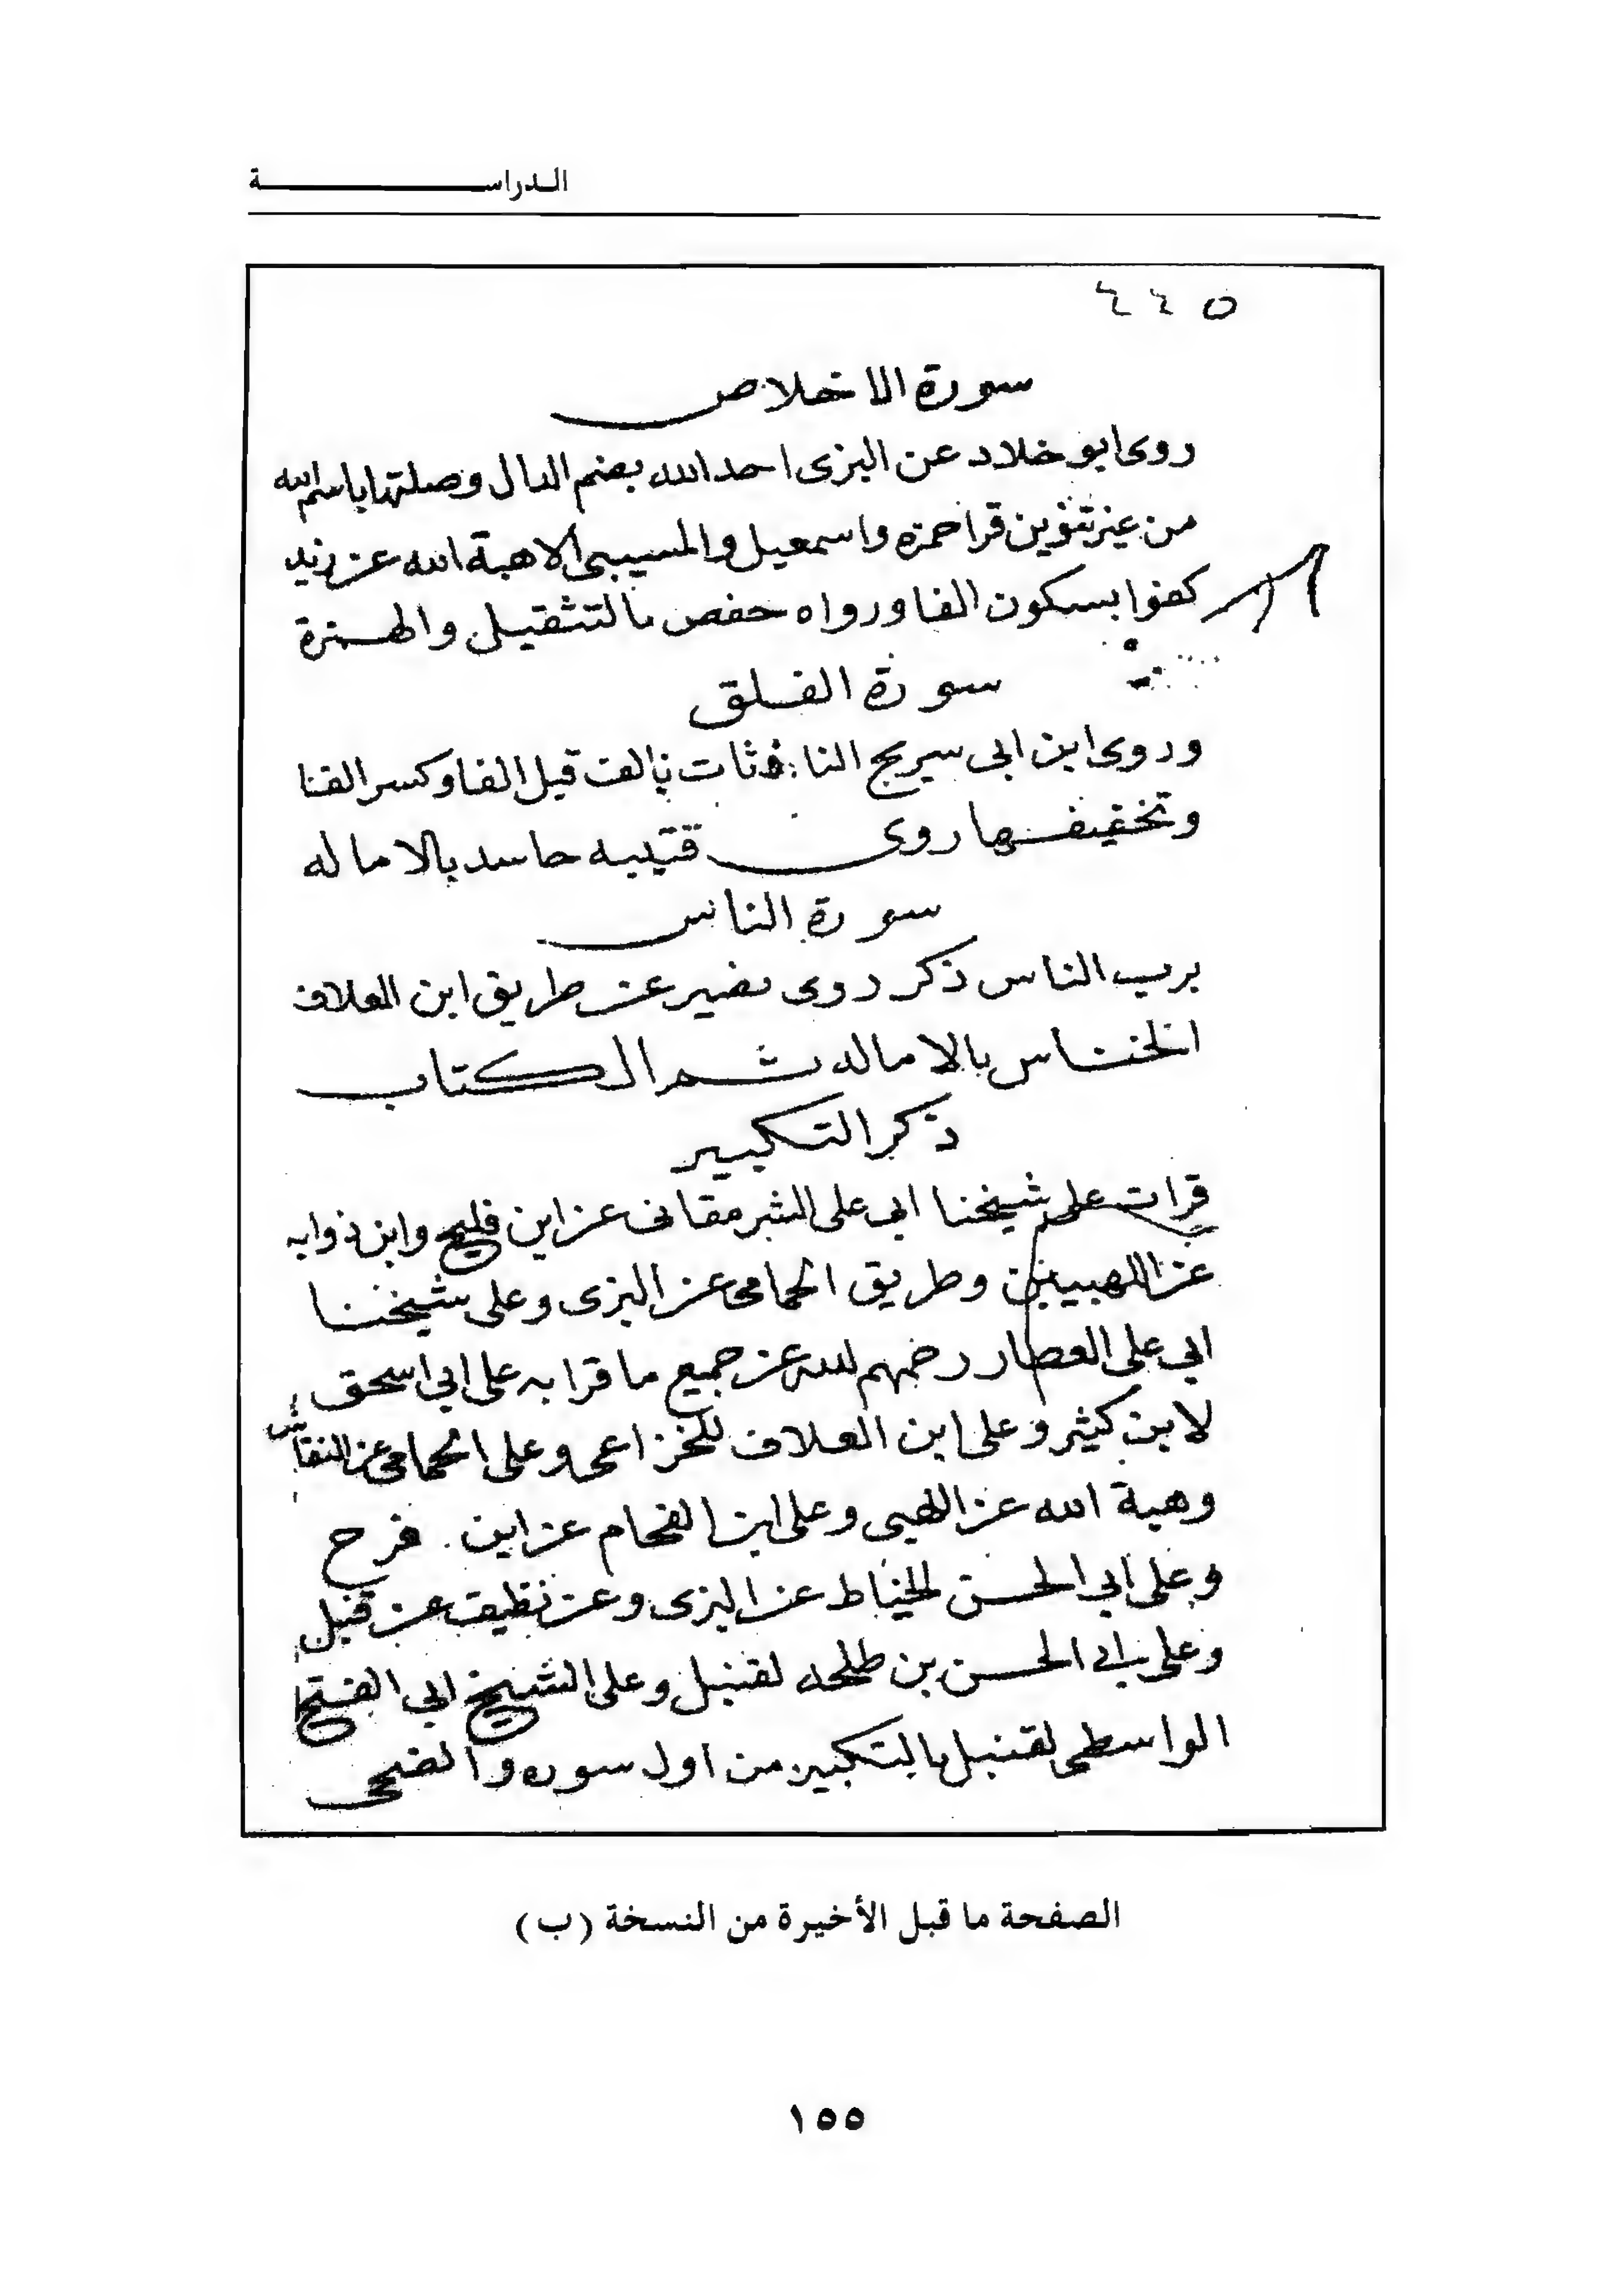 الدراسة
٤٤٥
سورة الاخلاص
روى ابو خلاد عن اليزى احد الله بضم الدال وصلتها باسم الله
من غير تنوين قرا حمزه واسمعيل والمسيبى الا هبة الله عن زيد
كفوا بسكون الفا ورواه حفص بالتثقيل والهمزة
سورة الفلق
وروى ابن ابى سريج النافثات بالف قبل الفا وكسر الفا
وتخفيفها روى قتيبه حاسد بالاماله
سورة الناس
برب الناس ذكر روى نصير عن طريق ابن العلاف
الخناس بالاماله ثم الكتاب
ذكر التكبير
قرات على شيخنا ابى على الشرمقانى عن ابن فليح وابن ذوابه
عن اللهبيين وطريق الحمامى عن البزى وعلى شيخنا
ابي على العطار رضيهم لله عن جميع ما قرا به على ابي اسحق
لابن كثير وعلى ابن العلاف للخزاعى وعلى الحمامى عن النقاش
وهبة الله عن اللهبى وعلى ابن الفحام عن ابن فرح
وعلى ابي الحسن الخياط عن البزى وعن نظيف عن قنبل
وعلى ابي الحسن بن طلحه لقنبل وعلى الشيخ ابي الفتح
الواسطى لقنبل بالتكبير من اول سوره والضحى
الصفحة ما قبل الأخيرة من النسخة (ب)
١٥٥